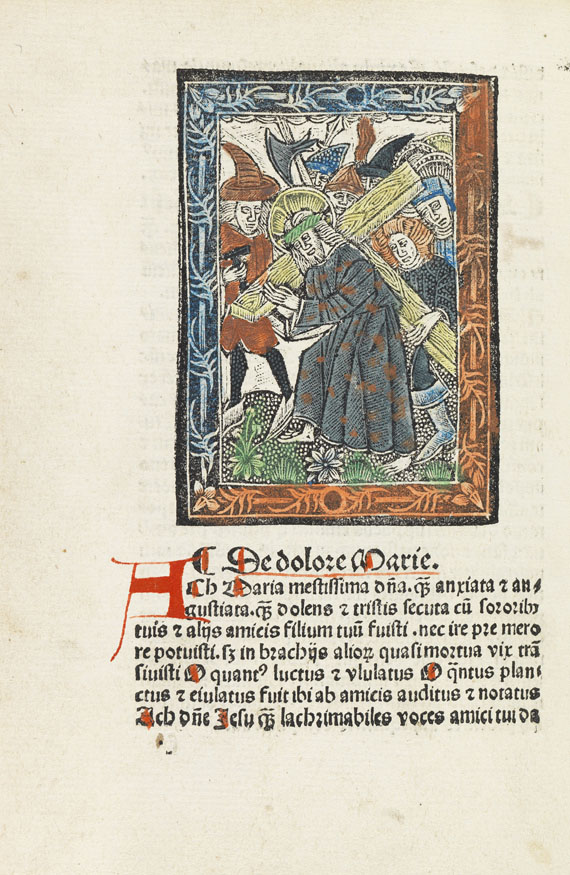 ¶ De dolore Marie.
ACh Maria mestissima dña. q̃ȝ anxiata ⁊ an⸗
gustiata. q̃ȝ dolens ⁊ tristis secuta cũ sororibꝰ
tuis ⁊ alijs amicis filium tuũ fuisti . nec ire pre mero
re potuisti. sȝ in brachijs alioꝝ quasi mortua vix trã
siuisti O quantꝰ luctus ⁊ vlulatus O q̃ntus plan⸗
ctus ⁊ eiulatus fuit ibi ab amicis auditus ⁊ notatus
Ach dñe Jesu q̃ȝ lachrimabiles voces amici tui da